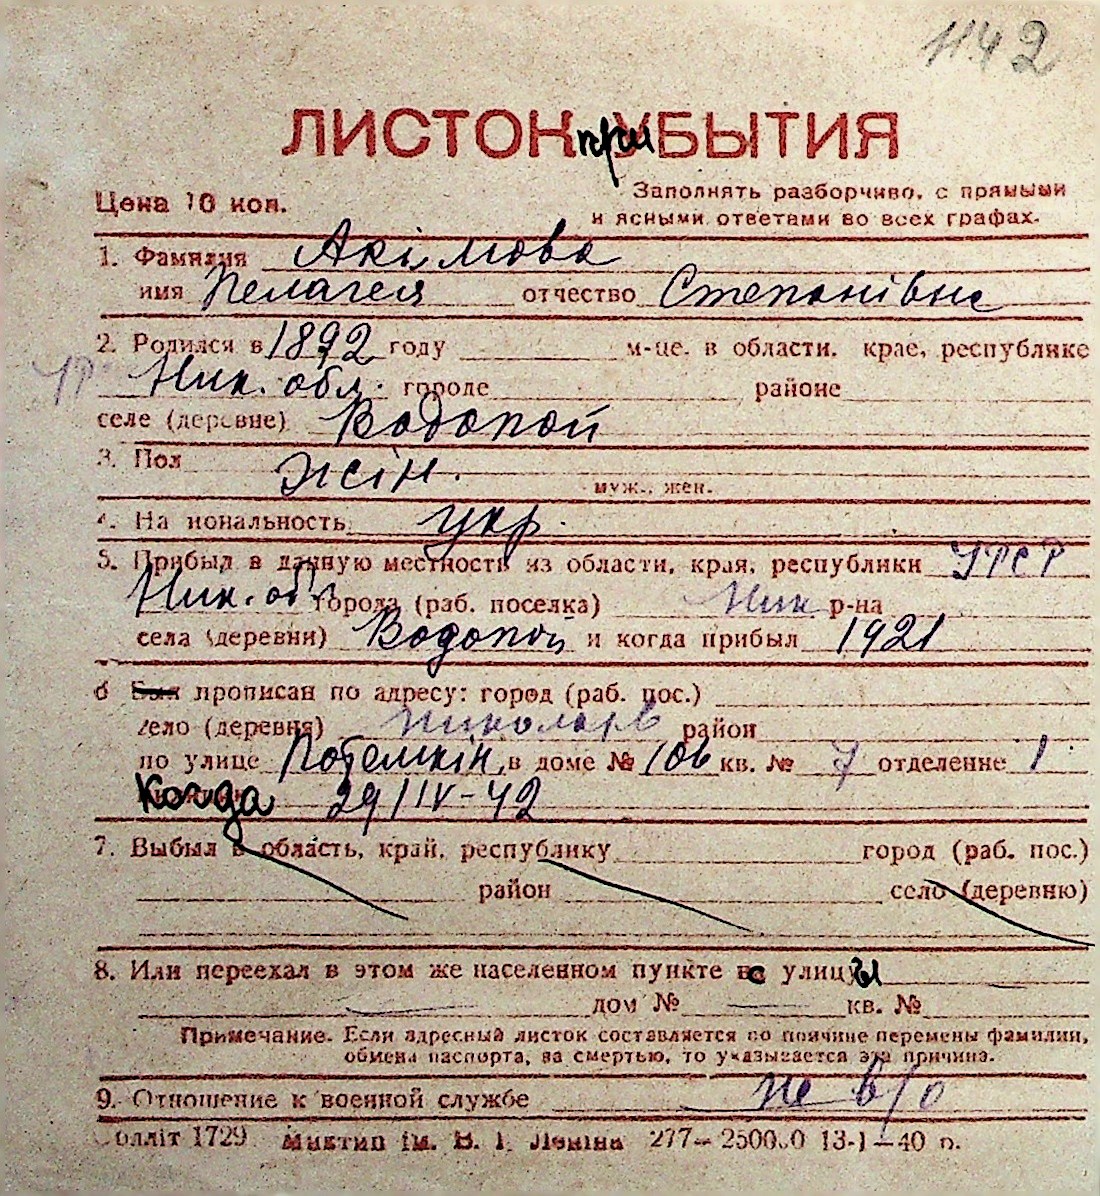 1142
ЛИСТОК прибЫТИЯ
Цена 10 коп.
Заполнять разборчиво, с прямыми
и ясными ответами во всех графах.
1. Фамилия Акімова
имя Пелагея отчество Степанівна
2. Родился в 1892 году м-це, в области, крае, республике
Ник. обл. городе районе
селе (деревне) Водопой
3. Пол жін.
муж., жен.
4. На иональность укр.
5. Прибыл в данную местность из области, края, республики УРСР
Ник. обл города (раб. поселка) Ник р-на
села (деревни) Водопой и когда прибыл 1921
6 Был прописан по адресу: город (раб. пос.)
село (деревня) район
по улице Потемкін. в доме № 106 кв. № 7 отделение 1
Когда 29/IV-42
7. Выбыл в область, край, республику город (раб. пос.)
район село (деревню)
8. Или переехал в этом же населенном пункте с улицы
дом № кв. №
Примечание. Если адресный листок составляется по причине перемены фамилии,
обмена паспорта, за смертью, то указывается эта причина.
9. Отношение к военной службе не в/о
олліт 1729 Миктип ім. В. І. Леніна 277— 250000 13-1—40 р.